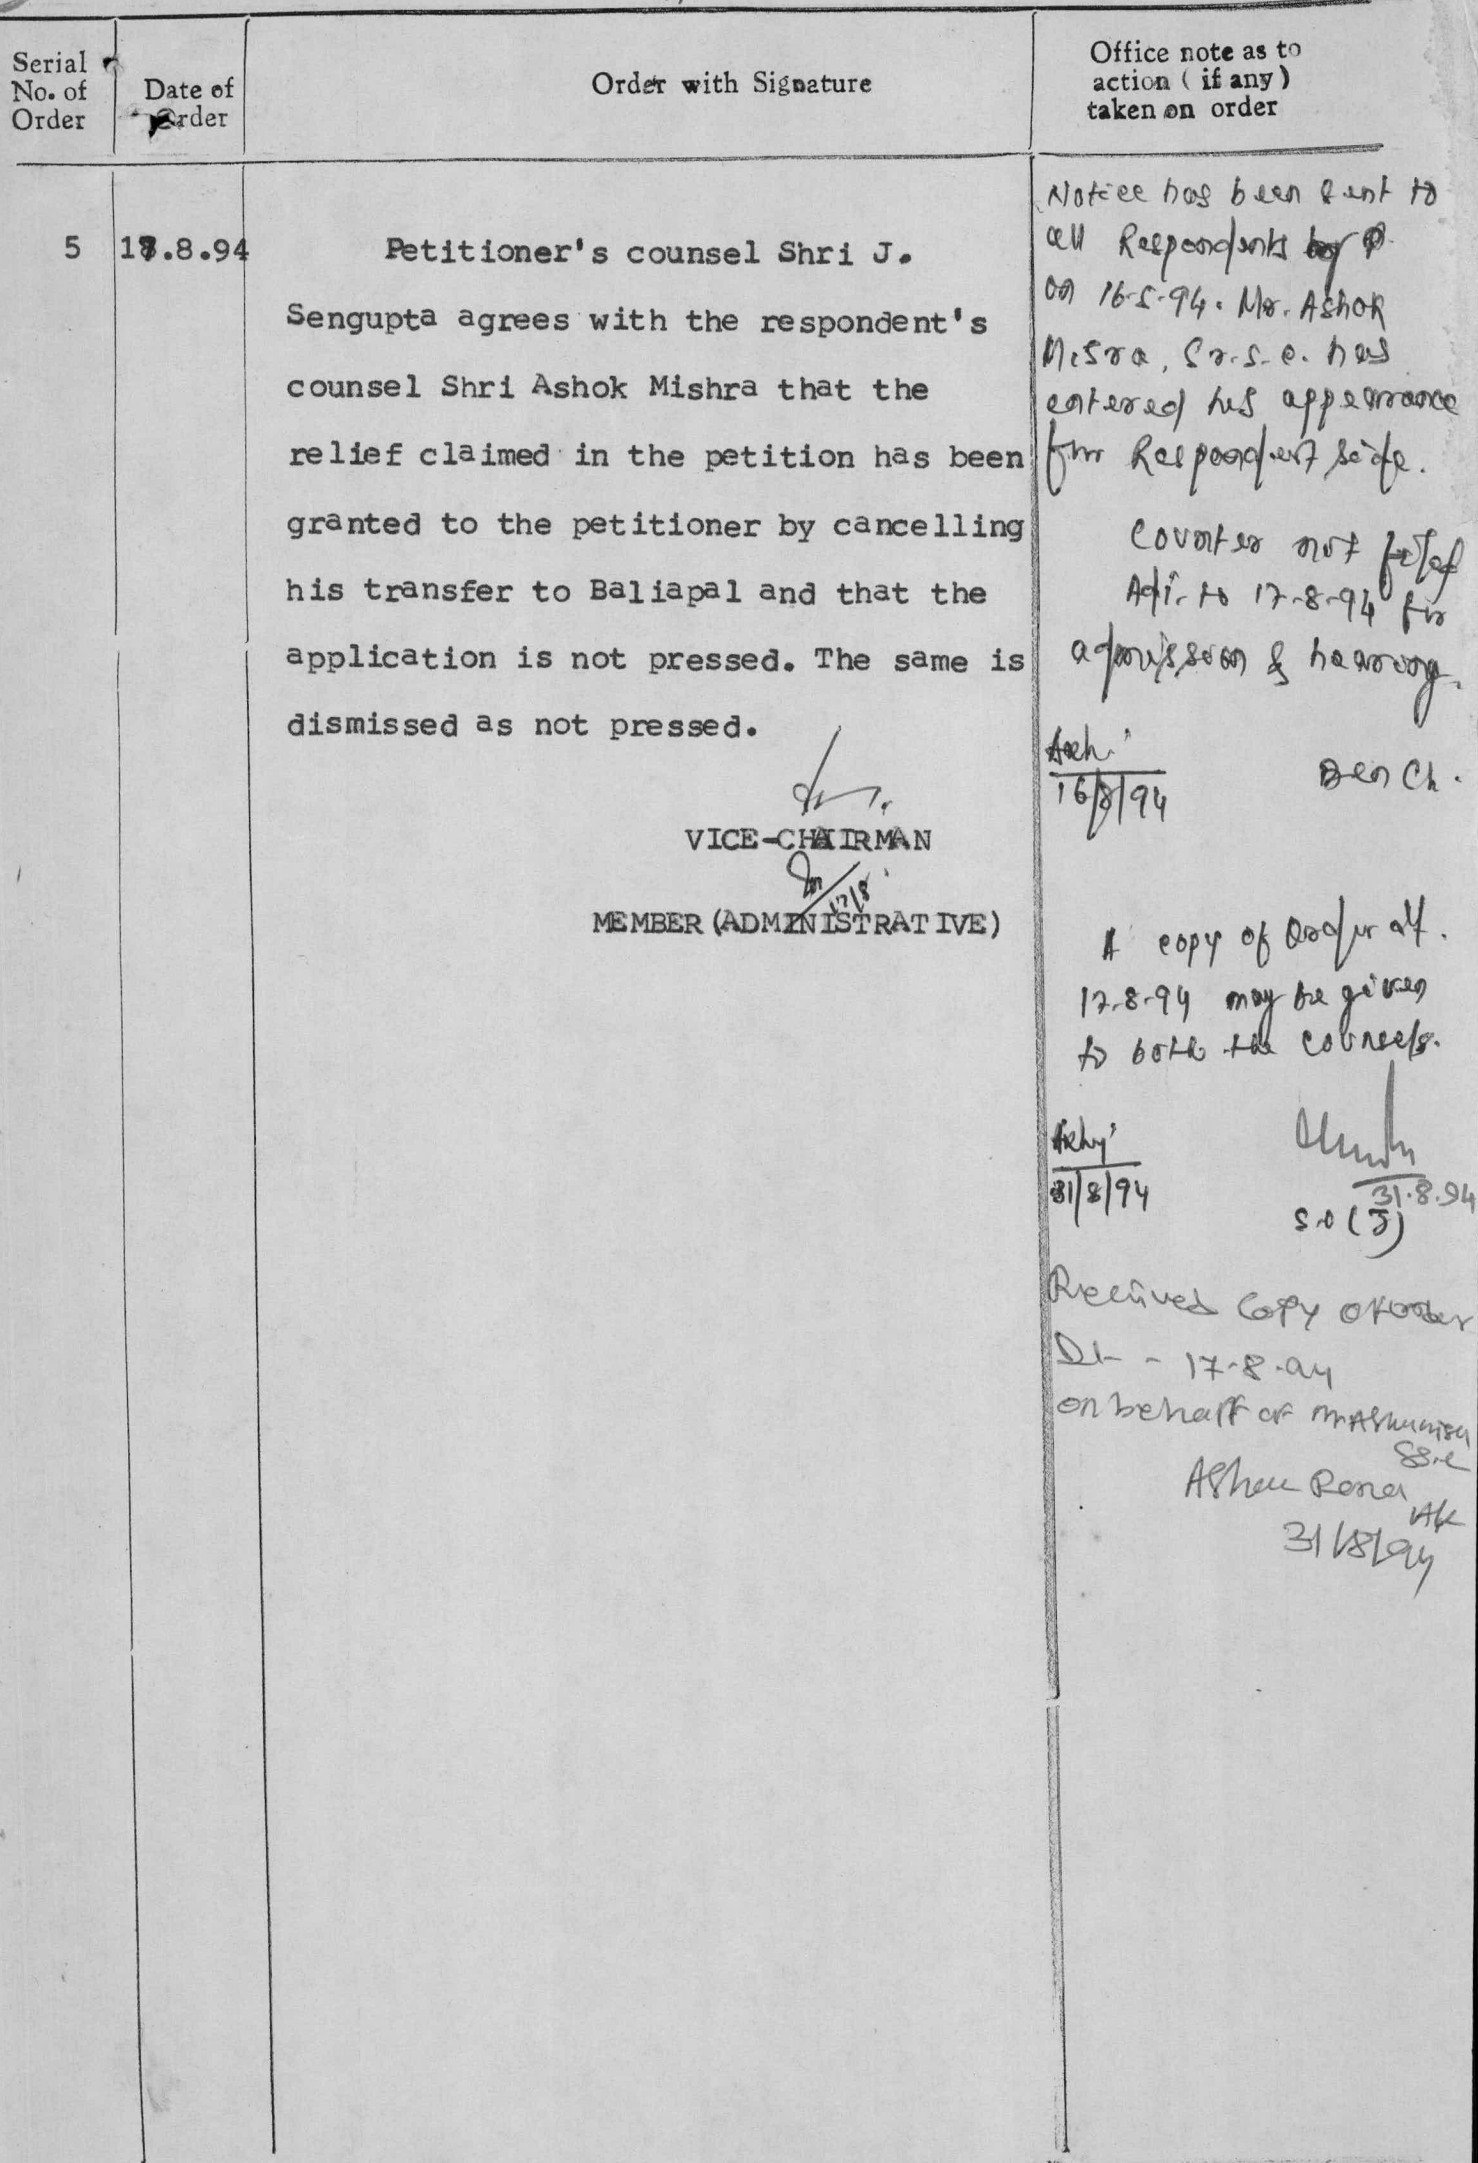 Serial
No. of
Order
Date of
Order
Order with Signature
Office note as to
action ( if any )
taken on order
5
17.8.94
Petitioner's counsel Shri J.
Sengupta agrees with the respondent's
counsel Shri Ashok Mishra that the
relief claimed in the petition has been
granted to the petitioner by cancelling
his transfer to Baliapal and that the
application is not pressed. The same is
dismissed as not pressed.
VICE-CHAIRMAN
17/8
MEMBER (ADMINISTRATIVE)
Notice has been sent to
all Respondents by
on 16-5-94. Mr. Ashok
Misra, Sr. S. C. has
entered his appearance
for Respondent side.
Counter not filed
Adj. to 17-8-94 for
admission & hearing.
16/8/94
Bench.
A copy of Order dt.
17-8-94 may be given
to both the counsels.
31/8/94
31.8.94
S.O (J)
Received Copy of order
Dt - 17-8-94
on behalf of
31/8/94